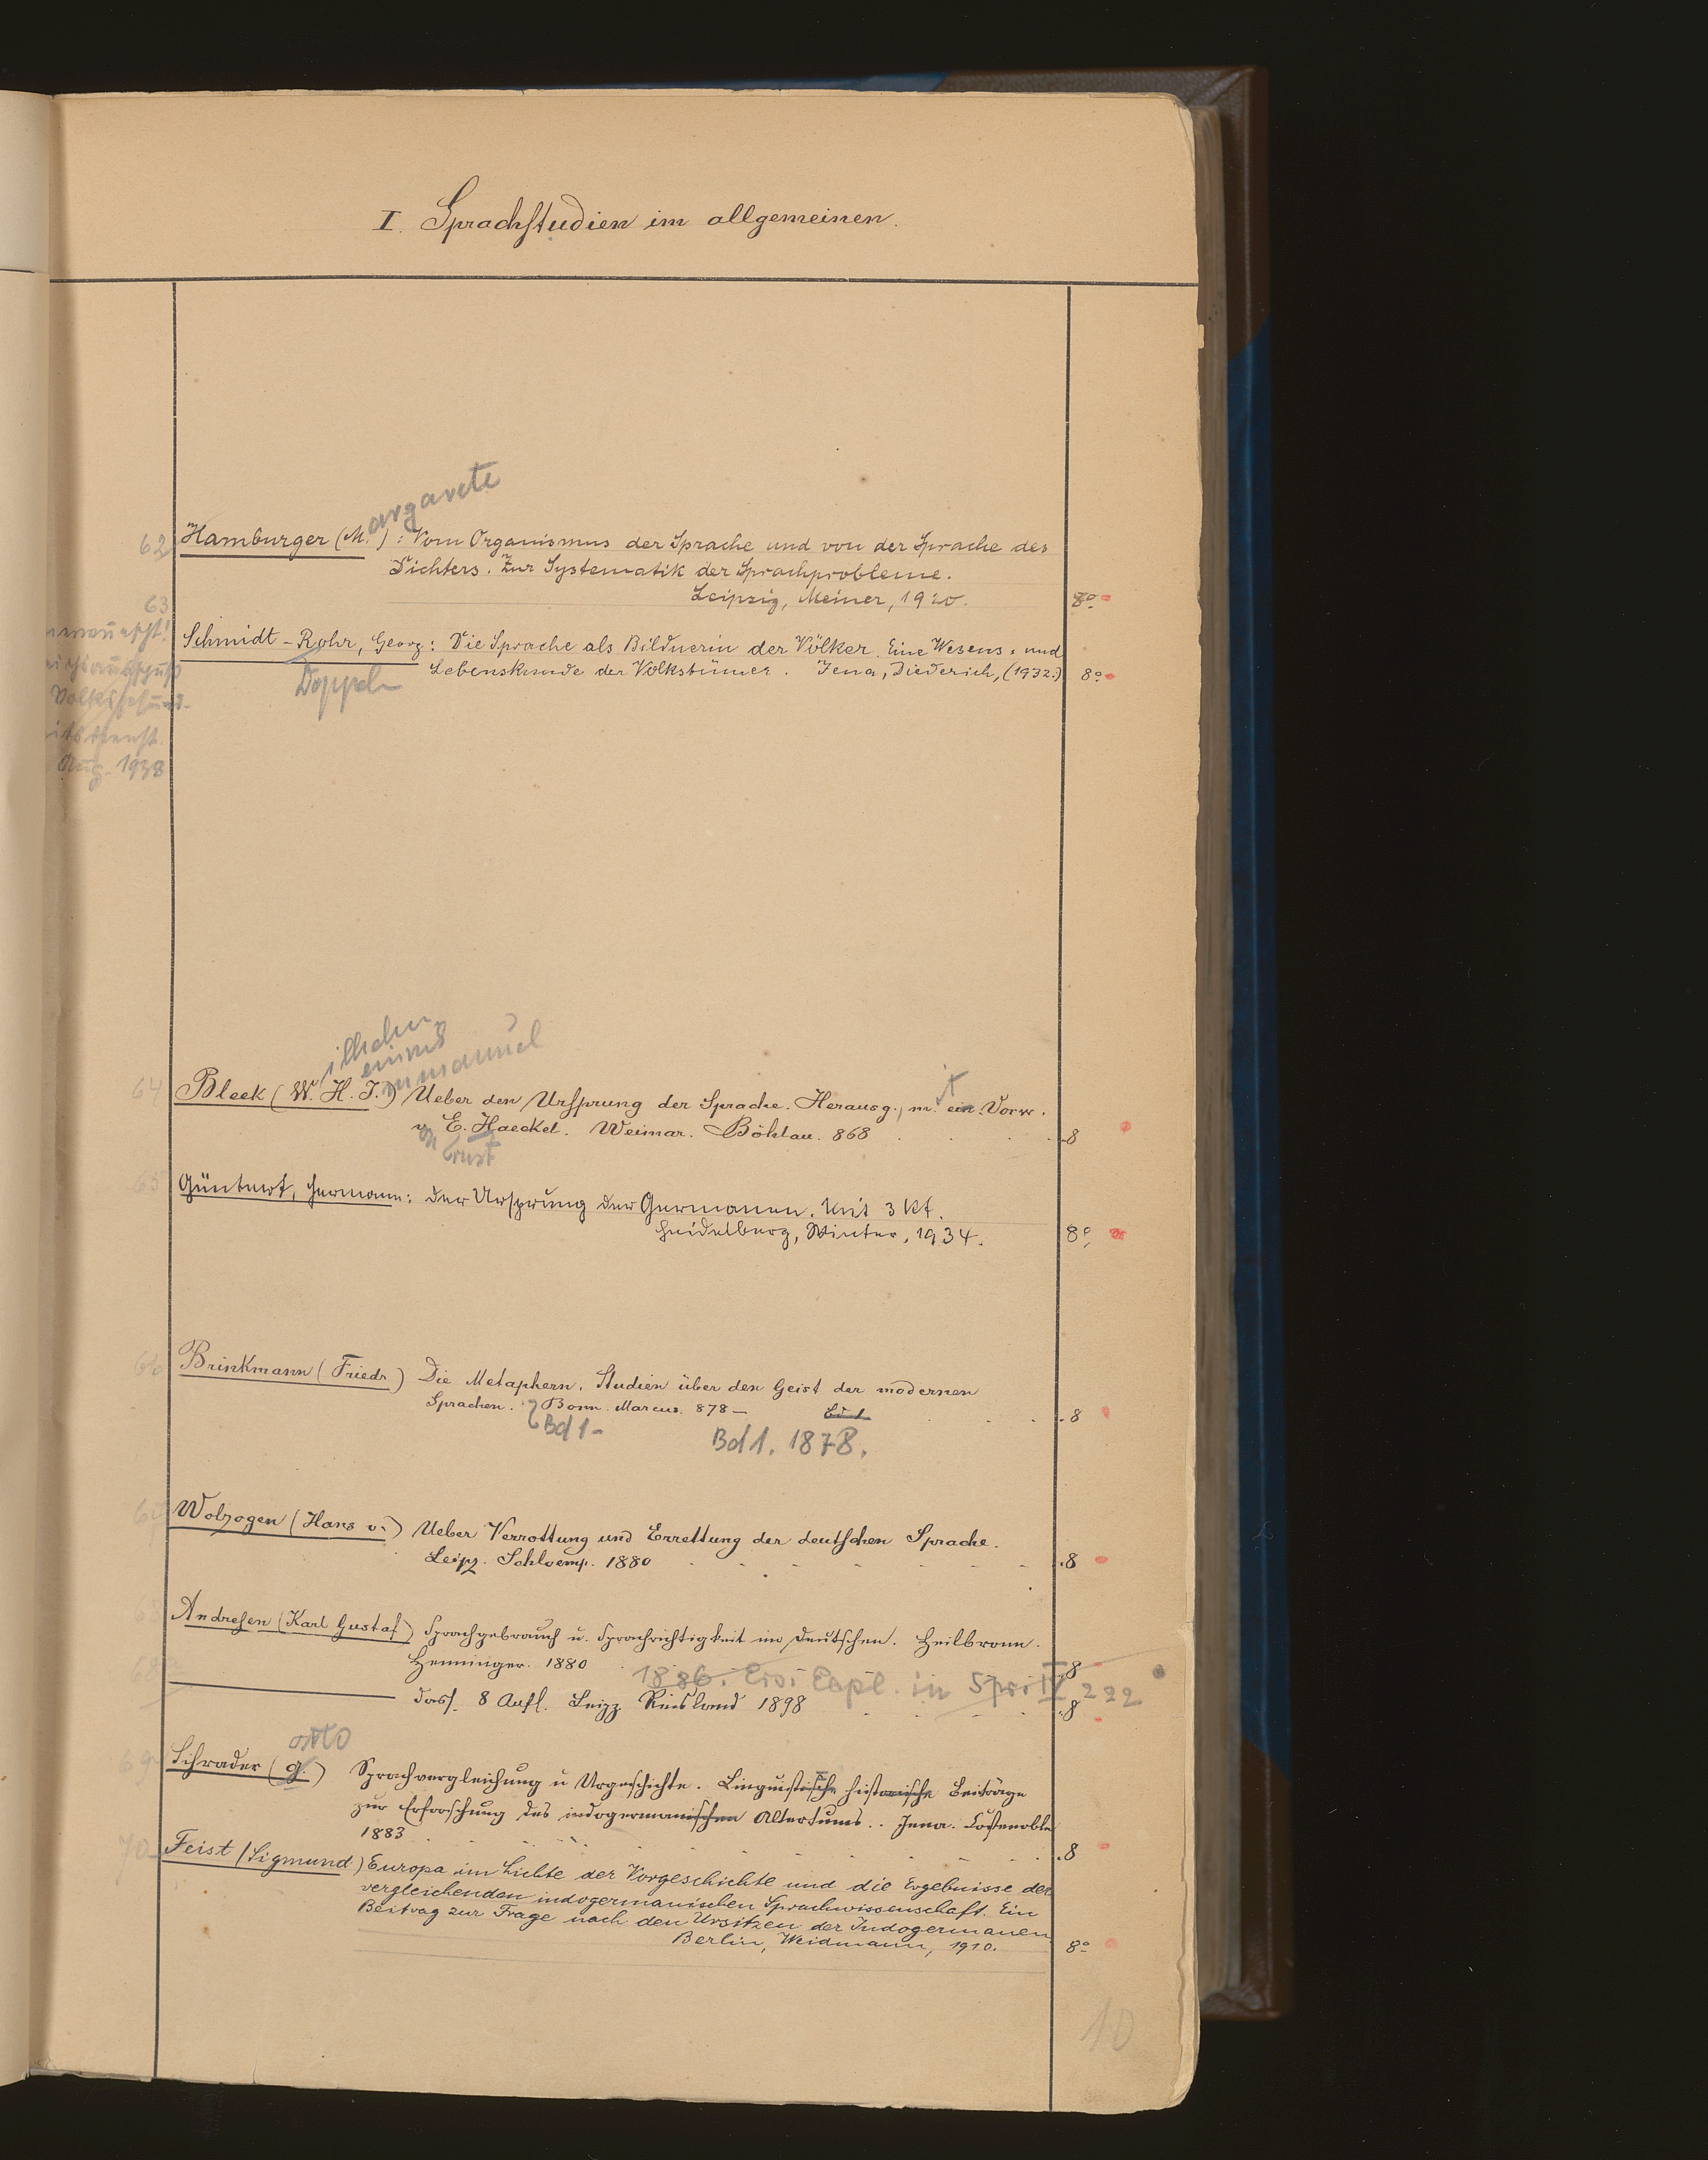 I. Sprachstudien im allgemeinen.
argarete
62 Hamburger (M.) : Vom Organismus der Sprache und von der Sprache des
Dichters. Zur Systematik der Sprachprobleme.
Leipzig, Meiner, 1920. 8º
63
Schmidt-Rohr, Georg: Die Sprache als Bildnerin der Völker. Eine Wesens- und
Lebenskunde der Volkstümer. Jena, Diederich, (1932.) 8º
Doppel
Aug. 1938
ilhelm
einrich
mmanuel
64 Bleek (W. H. J.) Ueber den Ursprung der Sprache. Herausg., m. ein. Vorw.
v. E. Haeckel. Weimar. Böhlau. 868 . . . 8
Ernst
65 Güntert, Hermann: Der Ursprung der Germanen. Mit 3 Kt.
Heidelberg, Winter, 1934. 8º
66 Brinkmann (Friedr.) Die Metaphern. Studien über den Geist der modernen
Sprachen. Bonn. Marcus. 878 – Bd 1 . . . 8
Bd 1 – Bd 1. 1878.
67 Wolzogen (Hans v.) Ueber Verrottung und Errettung der deutschen Sprache.
Leipz. Schloemp. 1880 . 8
68 Andresen (Karl Gustaf) Sprachgebrauch u. Sprachrichtigkeit im Deutschen. Heilbronn.
Henninger. 1880 8
1886. Eis. Expl. in Spr. IV 222
68a — dass. 8 Aufl. Leipz Reisland 1898 . . . 8
otto
69 Schrader (O.) Sprachvergleichung u Urgeschichte. Linguistisch historische Beiträge
zur Erforschung des indogermanischen Altertums.. Jena. Costenoble
1883 . . . 8
70 Feist (Sigmund) Europa im Lichte der Vorgeschichte und die Ergebnisse der
vergleichenden indogermanischen Sprachwissenschaft. Ein
Beitrag zur Frage nach den Ursitzen der Indogermanen.
Berlin, Weidmann, 1910. 8º
10